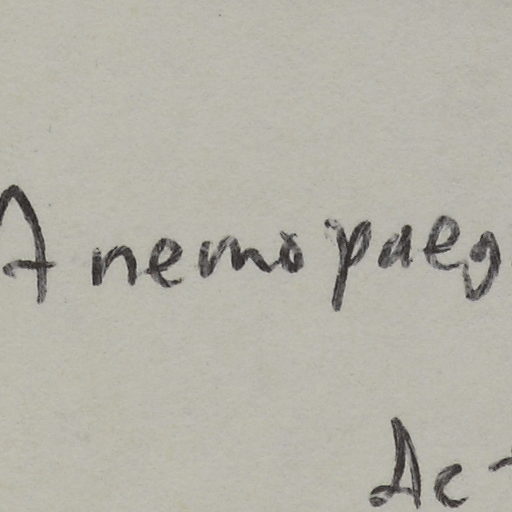 Anemopaeg
Ac